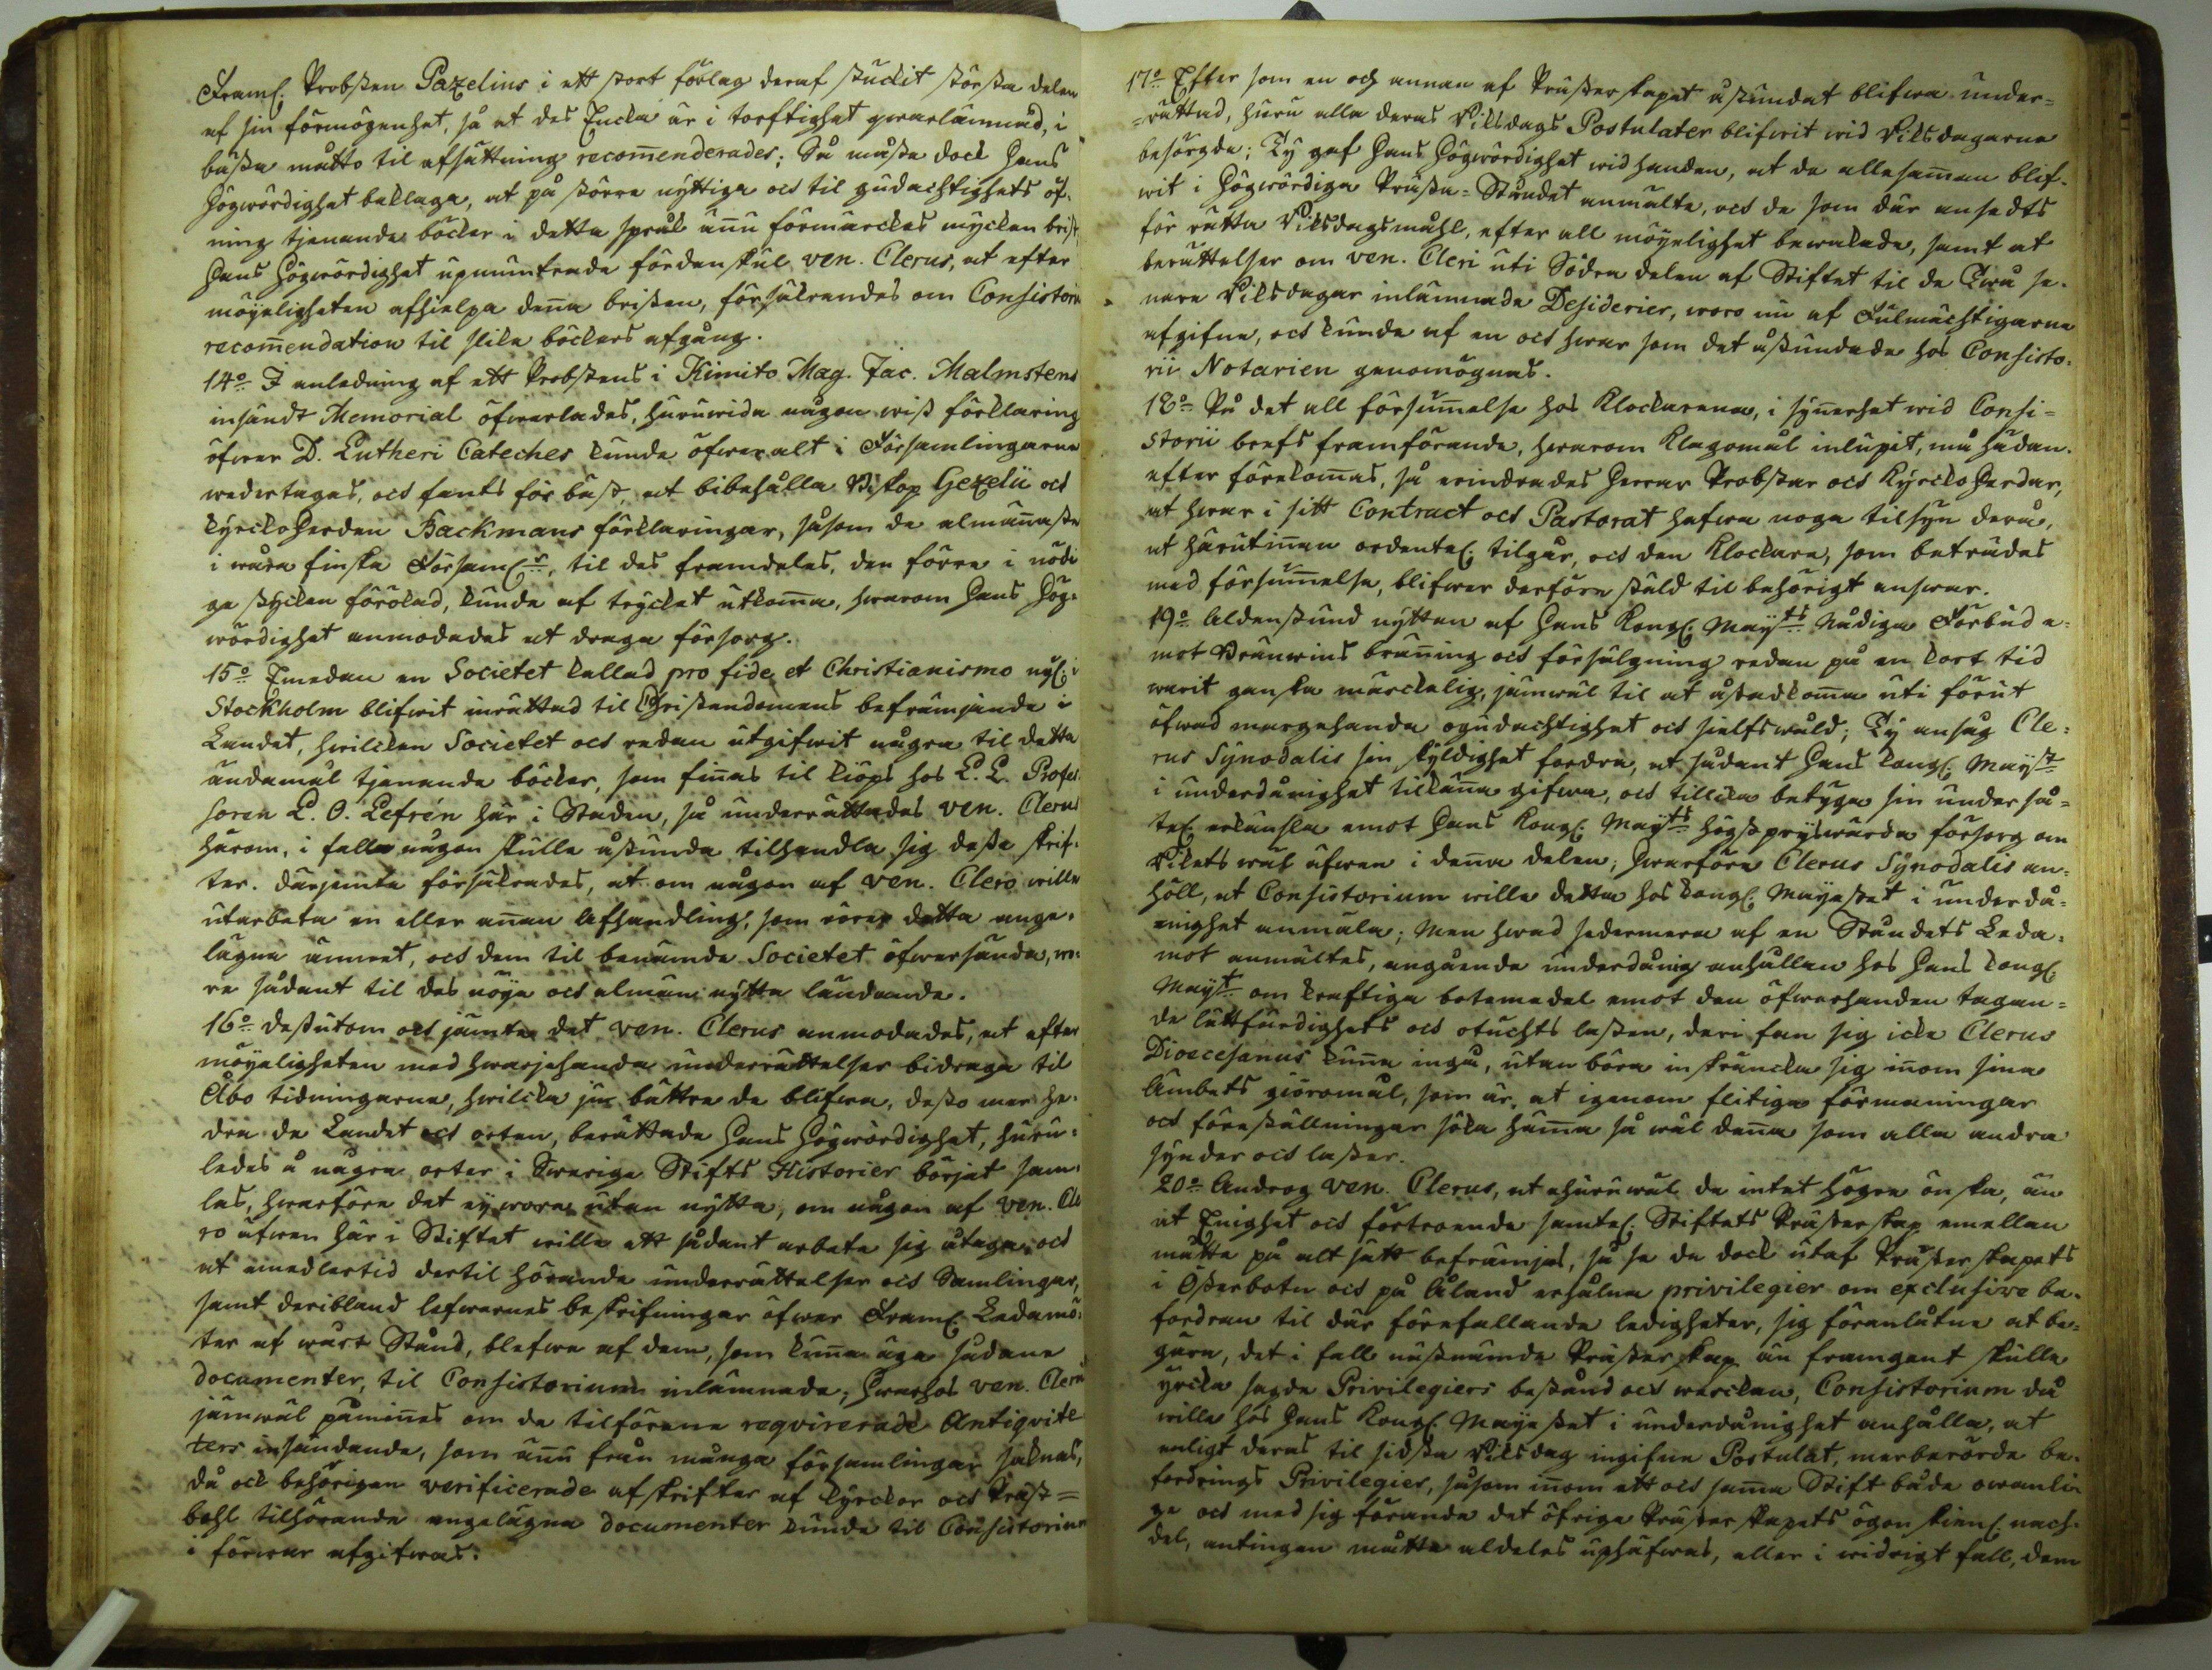 Framl. Probsten Pazelius i ett stort förlag deraf stuckit största delen
af sin förmögenhet, så at des Encka är i torftighet qwarlämnad, i
bästa måtto til afsättning recom̄enderades; Så måste dock Hans
Högwördighet beklaga, at på större nyttiga och til gudachtighets öf-
ning tjenande böcker i detta språk än̄u förmärckes mycken brist,
Hans Högwördighet upmuntrade fördenskul ven. Clerus, at efter
möyeligheten afhielpa den̄a bristen, försäkrandes om Consistorii
recom̄endation til slika böckers afgång.
14:o I anledning af ett Probstens i Kimito Mag. Jac. Malmstens
insändt Memorial öfwerlades, huruwida någon wiß förklaring
öfwer D. Lutheri Cateches kunde öfwer alt i Församlingarne
wedertagas, och fants för bäst, at bibehålla Biskop Gezelii och
Kyrckoherden Backmans förklaringar, såsom de almän̄aste
i wåra finska Församl:r, til des framdeles, den förre i nödi
ga stycken förökad, kunde af trycket utkom̄a, hwarom Hans Hög-
wördighet anmodades at draga försorg.
15:o Emedan en Societet kallad pro fide et Christianismo nyl. i
Stockholm blifwit inrättad til Christendomens befrämjande i
Landet, hwilcken Societet och redan utgifwit några til detta
ändamål tjenande böcker, som fin̄as til kiöps hos L. L. Profes-
soren L. O. Lefrén här i Staden, så underrättades ven. Clerus
härom, i fall någon skulle åstunda tilhandla sig deßa skrif-
ter. därjämte försäkrades, at om någon af ven. Clero wille
utarbeta en eller an̄an Afhandling, som rörer detta ange-
lägna ämnet, och dem til benämde Societet öfwersända, wo-
re sådant til des nöye och almän nytta ländande.
16:o deßutom och jämte det ven. Clerus anmodades, at efter
möyeligheten med hwarjehanda underrättelser bidraga til
Åbo tidningarne, hwilcka ju bättre de blifwa, deßo mer he-
dra de Landet och orten, berättade Hans Högwördighet, huru-
ledes å några orter i Swerige Stifts Historier börjat sam-
las, hwarföre det ey wore utan nytta, om någon af ven. Cle
ro äfwen här i Stiftet wille ett sådant arbete sig åtaga, och
at emedlertid dertil hörande underrättelser och Samlingar,
samt deribland lefwernes beskrifningar öfwer Framl. Ledamö-
ter af wårt Stånd, blefwe af dem, som kun̄a äga sådane
documenter, til Consistorium inlämnade; Hwarhos ven. Clerus
jämwäl påmin̄es om de tilförene reqvirerade Antiqvite
ters insändande, som än̄u från många församlingar saknas,
då ock behörigen verificerade afskrifter af Kyrckor och Präst=
bohl tilhörande angelägna documenter kunde til Consistorium
i förwar afgifwas.
17:o Efter som en och annan af Prästerskapet åstundat blifwa under-
=rättad, huru alla deras Riksdags Postulater blifwit wid Riksdagarne
besörgde; Ty gaf Hans Högwördighet wid handen, at de allesam̄an blif-
wit i Högwördiga Präste=Ståndet anmälte, och de som där ansedts
för rätta Riksdagsmåhl, efter all möyelighet bewakade, samt at
berättelser om ven. Cleri uti Södra delen af Stiftet til de twå se-
nare Riksdagar inlämnade Desiderier, woro nu af Fulmächtigarne
afgifne, och kunde af en och hwar som det åstundade hos Consisto-
rii Notarien genomögnas.
18:o På det all försum̄else hos Klockarena, i syn̄erhet wid Consi-
storii brefs framförande, hwarom klagomål inlupit, må hädan-
efter förekom̄as, så erindrades Herrar Probstar och Kyrckoherdar,
at hwar i sitt Contract och Pastorat hafwa noga tilsyn derå,
at härutin̄an ordentel. tilgår, och den Klockare, som beträdes
med försum̄else, blifwer derföre stäld til behörigt answar.
19:o Aldenstund nyttan af Hans Kongl. Maij:ts Nådiga Förbud e-
mot Bränwins brän̄ing och försälgning redan på en kort tid
warit ganska märckelig, jämwäl til at åstadkom̄a uti förut
öfwad margehanda ogudachtighet och sielfswåld; Ty ansåg Cle-
rus Synodalis sin skyldighet fordra, at sådant Hans Kongl. Maij:t
i underdånighet tilkän̄a gifwa, och tillika betyga sin underså-
tel. erkänsla emot Hans Kongl. Maij:ts högst pryswärda försorg om
Rikets wäl äfwen i den̄a delen; Hwarföre Clerus Synodalis an-
höll, at Consistorium wille detta hos Kongl. Mayestet i underdå-
nighet anmäla; Men hwad sedermera af en Ståndets Leda-
mot anmältes, angående underdånig anhållan hos Hans Kongl.
Maij:t om kraftiga botemedel emot den öfwerhanden tagan-
de lättfärdighets och otuchts lasten, deri fan sig icke Clerus
Dioecesanus kun̄a ingå, utan böra inskräncka sig in̄om sina
Ämbets giöromål, som är, at igenom flitiga förmaningar
och föreställningar söka häm̄a så wäl den̄a som alla andra
synder och laster.
20:o Androg ven. Clerus, at ehuruwäl de intet högre önska, än
at Enighet och förtroende samtel. Stiftets Prästerskap emellan
måtte på alt sätt befrämjas, så se de dock utaf Prästerskapets
i Österbotn och på Åland erhålne privilegier om exclusive be-
fordran til där förefallande ledigheter, sig föranlåtne at be-
gära, det i fall nästnämde Prästerskap än framgent skulle
yrcka sagde Privilegiers bestånd och wercken, Consistorium då
wille hos Hans Kongl. Mayestet i underdånighet anhålla, at
enligt deras til sidsta Riksdag ingifne Postulat, merberörde be-
fordrings Privilegier, såsom in̄om ett och sam̄a Stift både owanli-
ge och med sig förande det öfriga Prästerskapets ögonskienl. nach-
del, antingen måtte aldeles uphäfwas, eller i widrigt fall, dem